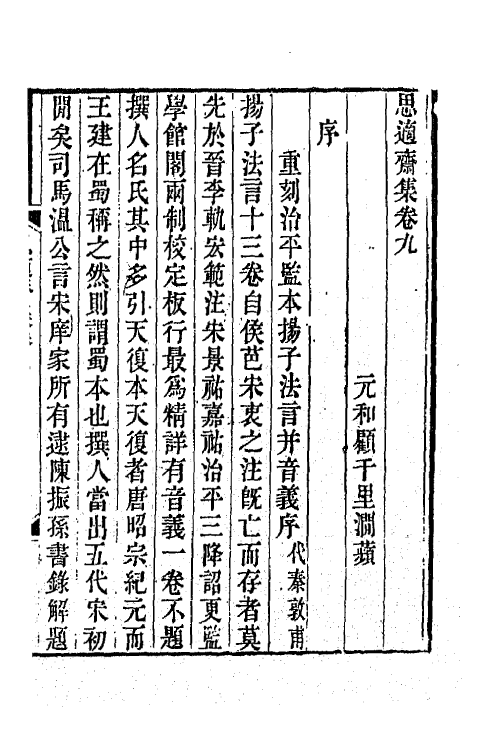 思適齋集卷九
元和顧千里澗薲
序
重刻治平監本揚子法言并音義序代秦敦甫
揚子法言十三卷自侯芭宋衷之注旣亡而存者莫
先於晉李軌宏範注宋景祐嘉祐治平三降詔更監
學館閣兩制校定板行最爲精詳有音義一卷不題
撰人名氏其中多引天復本天復者唐昭宗紀元而
王建在蜀稱之然則謂蜀本也撰人當出五代宋初
閒矣司馬溫公言宋庠家所有逮陳振孫書錄解題